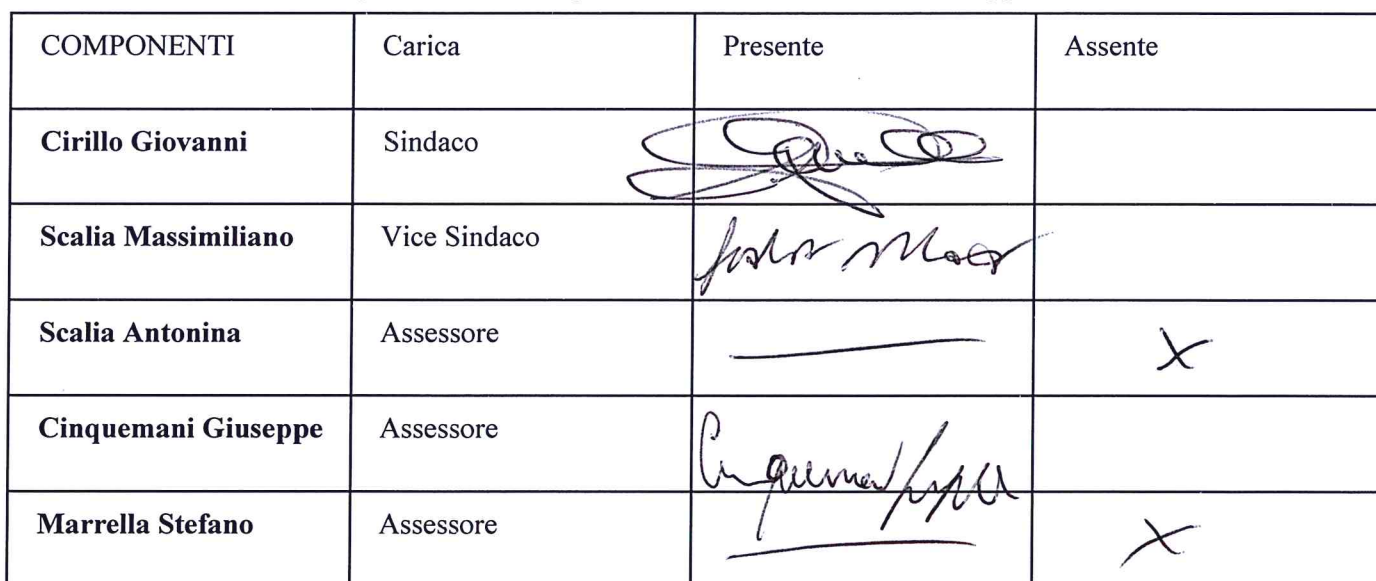 COMPONENTI Carica Presente Assente
Cirillo Giovanni Sindaco
Scalia Massimiliano Vice Sindaco
Scalia Antonina Assessore X
Cinquemani Giuseppe Assessore
Marrella Stefano Assessore X